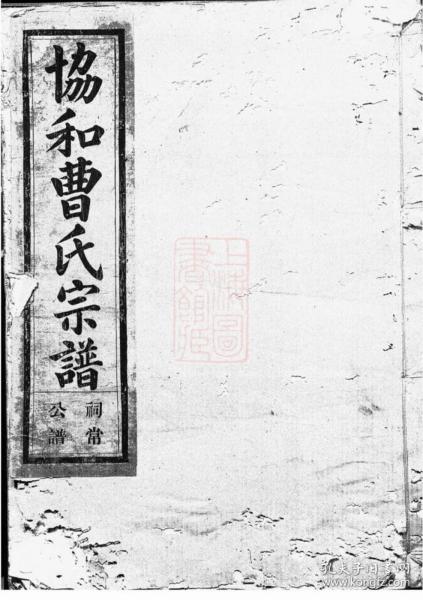 協和曹氏宗譜
祠當
公譜
上海圖
書館藏
孔夫子旧书网
www.kongfz.com